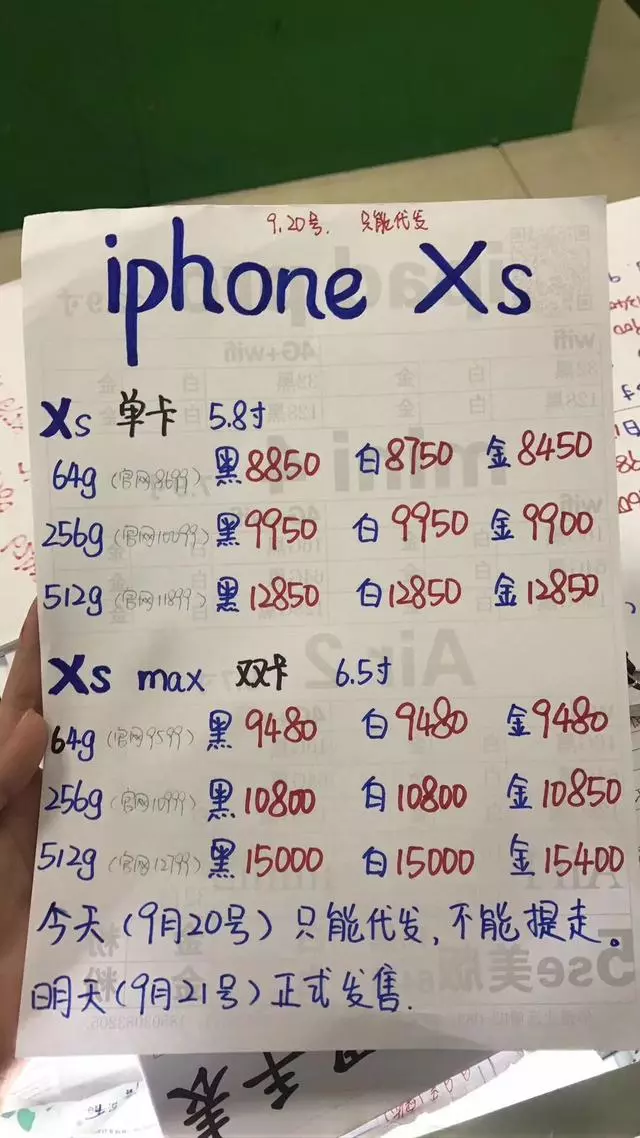 9.20号. 只能代发
iphone Xs
Xs 单卡 5.8寸
64g (官网8699) 黑8850 白8750 金8450
256g (官网10099) 黑9950 白9950 金9900
512g (官网11899) 黑12850 白12850 金12850
Xs max 双卡 6.5寸
64g (官网9599) 黑9480 白9480 金9480
256g (官网10999) 黑10800 白10800 金10850
512g (官网12799) 黑15000 白15000 金15400
今天(9月20号)只能代发,不能提走。
明天(9月21号)正式发售.